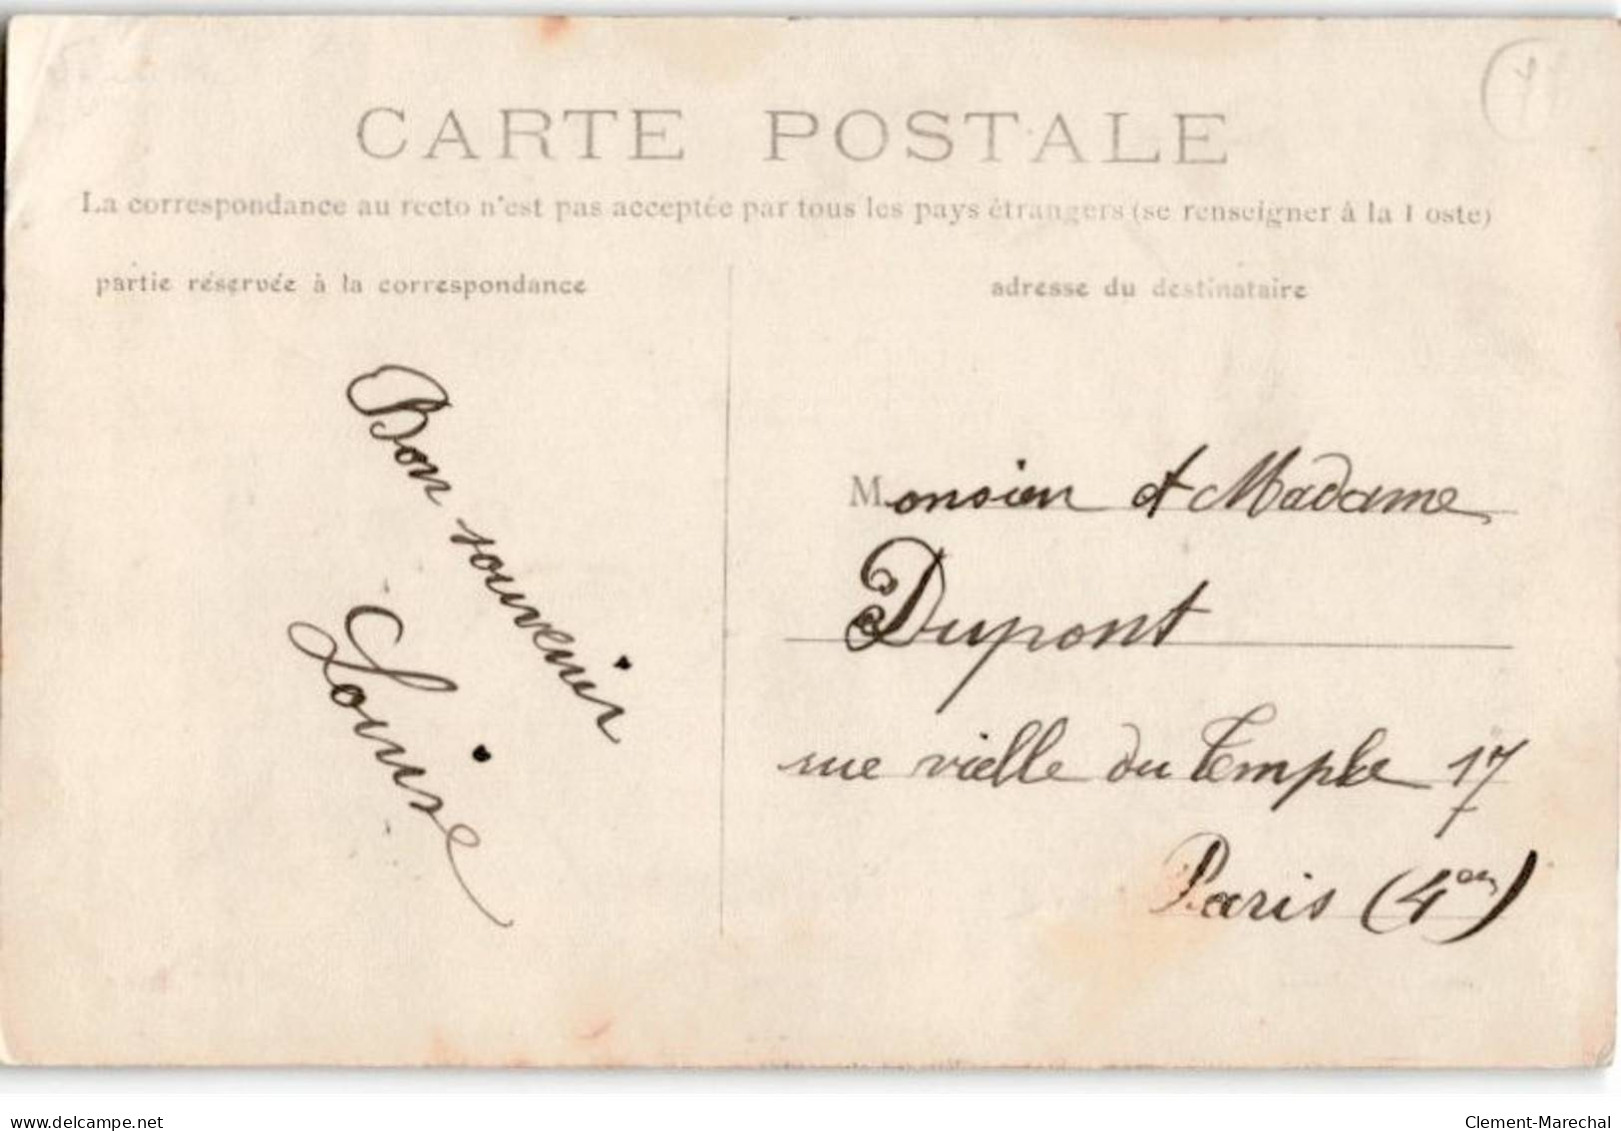 CARTE POSTALE
La correspondance au recto n'est pas acceptée par tous les pays étrangers (se renseigner à la Poste)
partie réservée à la correspondance
adresse du destinataire
Bon souvenir
Louise
Monsieur et Madame
Dupont
rue vielle du Temple 17
Paris (4em)
delcampe.net
Clement-Marechal